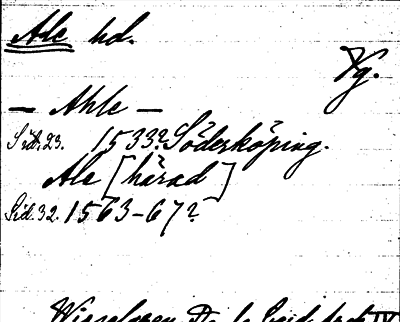 Ale hd.
Vg.
— Ahle —
Sid. 23. 1533? Söderköping.
Ale [härad]
Sid. 32. 1563-67?